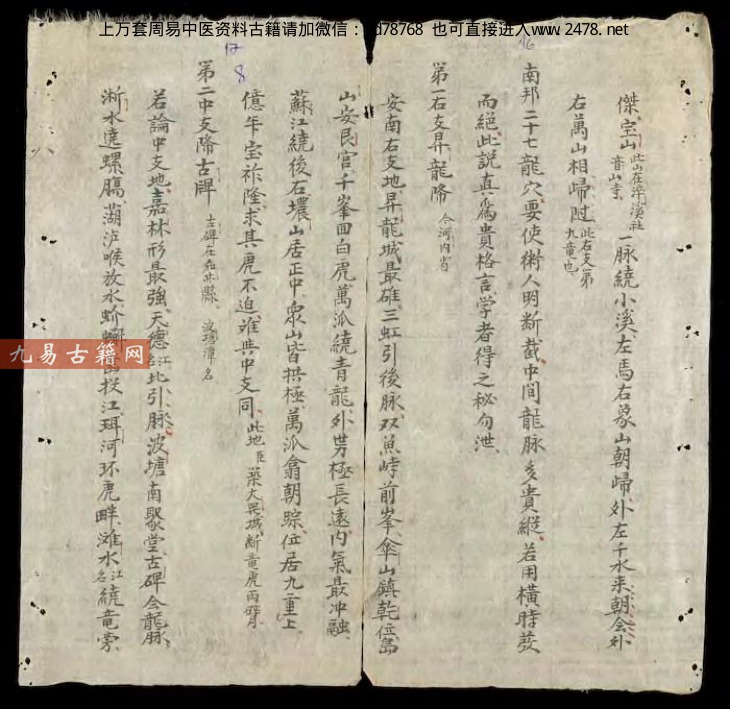 上万套周易中医资料古籍请加微信：djd78768 也可直接进入www.2478.net
16
17
8
九易古籍网
傑、宝山 此山在 溪社 音山寺 一脉繞小溪、左馬右象山朝歸、外左千水来朝会外
右萬山相歸 此右支第九竜也
南邦二十七龍穴、要使術人明断截、中間龍脉多貴縱、若用橫時荻
而絕、此説真爲貴格言、学者得之秘勿泄、
第一右支昇龍降 今河内省
安南右支地、昇龍城最雄、三虹引後脉、双魚峙前峯、傘山鎮乾位、島
山安艮宫、千峯囬白虎、萬派繞青龍、外势極長遠、内氣最冲融、
蘇江繞後石、壞山居正中、衆山皆拱極、萬派翕朝踪、位居九重上、
億年宝祚隆、求其虎不迫、难与中支同、此地 築大 城、断竜虎両
第二中支降古碑 古碑在 林縣、波塘潭名
若論中支地、嘉林形最強、天德江北引、脉波塘南聚堂、古碑会龍脉
淅水遶螺膓、湖泸喉放水、 山投江、珥河环虎畔、滩水江名繞竜旁、